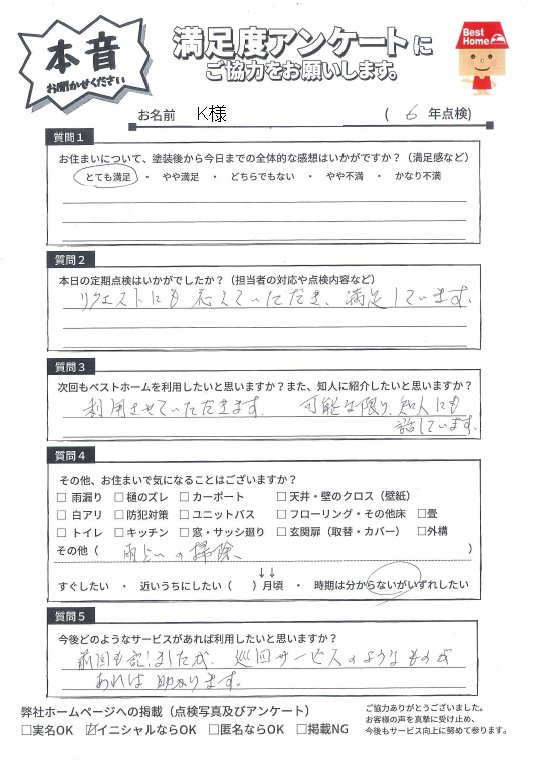 本音
お聞かせください
満足度アンケートに
ご協力をお願いします。
Best Home
お名前 K様 ( 6 年点検)
質問1
お住まいについて、塗装後から今日までの全体的な感想はいかがですか？（満足感など）
とても満足 ・ やや満足 ・ どちらでもない ・ やや不満 ・ かなり不満
質問2
本日の定期点検はいかがでしたか？（担当者の対応や点検内容など）
リクエストにも応えていただき、満足しています。
質問3
次回もベストホームを利用したいと思いますか？また、知人に紹介したいと思いますか？
利用させていただきます。 可能な限り、知人にも
話しています。
質問4
その他、お住まいで気になることはございますか？
□ 雨漏り □ 樋のズレ □ カーポート □ 天井・壁のクロス（壁紙）
□ 白アリ □ 防犯対策 □ ユニットバス □ フローリング・その他床 □畳
□ トイレ □ キッチン □ 窓・サッシ廻り □ 玄関扉（取替・カバー） □外構
その他（ 雨といの掃除、 ）
↓↓
すぐしたい ・ 近いうちにしたい（ ）月頃 ・ 時期は分からないがいずれしたい
質問5
今後どのようなサービスがあれば利用したいと思いますか？
前回も記しましたが、巡回サービスのようなものが
あれば助かります。
弊社ホームページへの掲載（点検写真及びアンケート）
□実名OK ☑イニシャルならOK □匿名ならOK □掲載NG
ご協力ありがとうございました。
お客様の声を真摯に受け止め、
今後もサービス向上に努めて参ります。